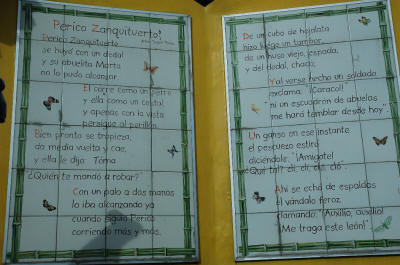 Perico Zanquituerto
Perico Zanquituerto
se huyó con un dedal
y su abuelita Marta
no lo pudo alcanzar.
El corre como un perro
y ella como un costal
y apenas con la vista
persigue al perillán.
Bien pronto se tropieza,
da media vuelta y cae,
y ella le dijo: Toma
¿Quién te mandó a robar?
Con un palo a dos manos
lo iba alcanzando ya
cuando siguió Perico
corriendo más y más.
De un cubo de hojalata
hizo luego un tambor
de un huso viejo, espada,
y del dedal, chacó;
Y al verse hecho un soldado
exclama: "¡Caracol!"
"ni un escuadrón de abuelas
me hará temblar desde hoy".
Un ganso en ese instante
el pescuezo estiró
diciéndole: "¡Amigote!
¿Qué tal? cli, cli, clo, clo"
Ahí se echó de espaldas
el vándalo feroz
clamando, "¡Auxilio, auxilio!
¡Me traga este león!"